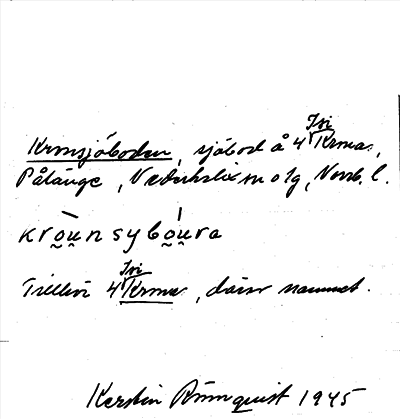 Kronsjöboden, sjöbod å 4 Tri Krona,
Pålänge, Nederkalix sn o tg, Norrb. l.
kròunsybóura
Tillhör 4 Tri Krona, därav namnet.
Kerstin Rönnquist 1945